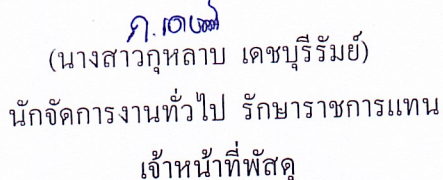 (นางสาวกุหลาบ เดชบุรีรัมย์)
นักจัดการงานทั่วไป รักษาราชการแทน
เจ้าหน้าที่พัสดุ